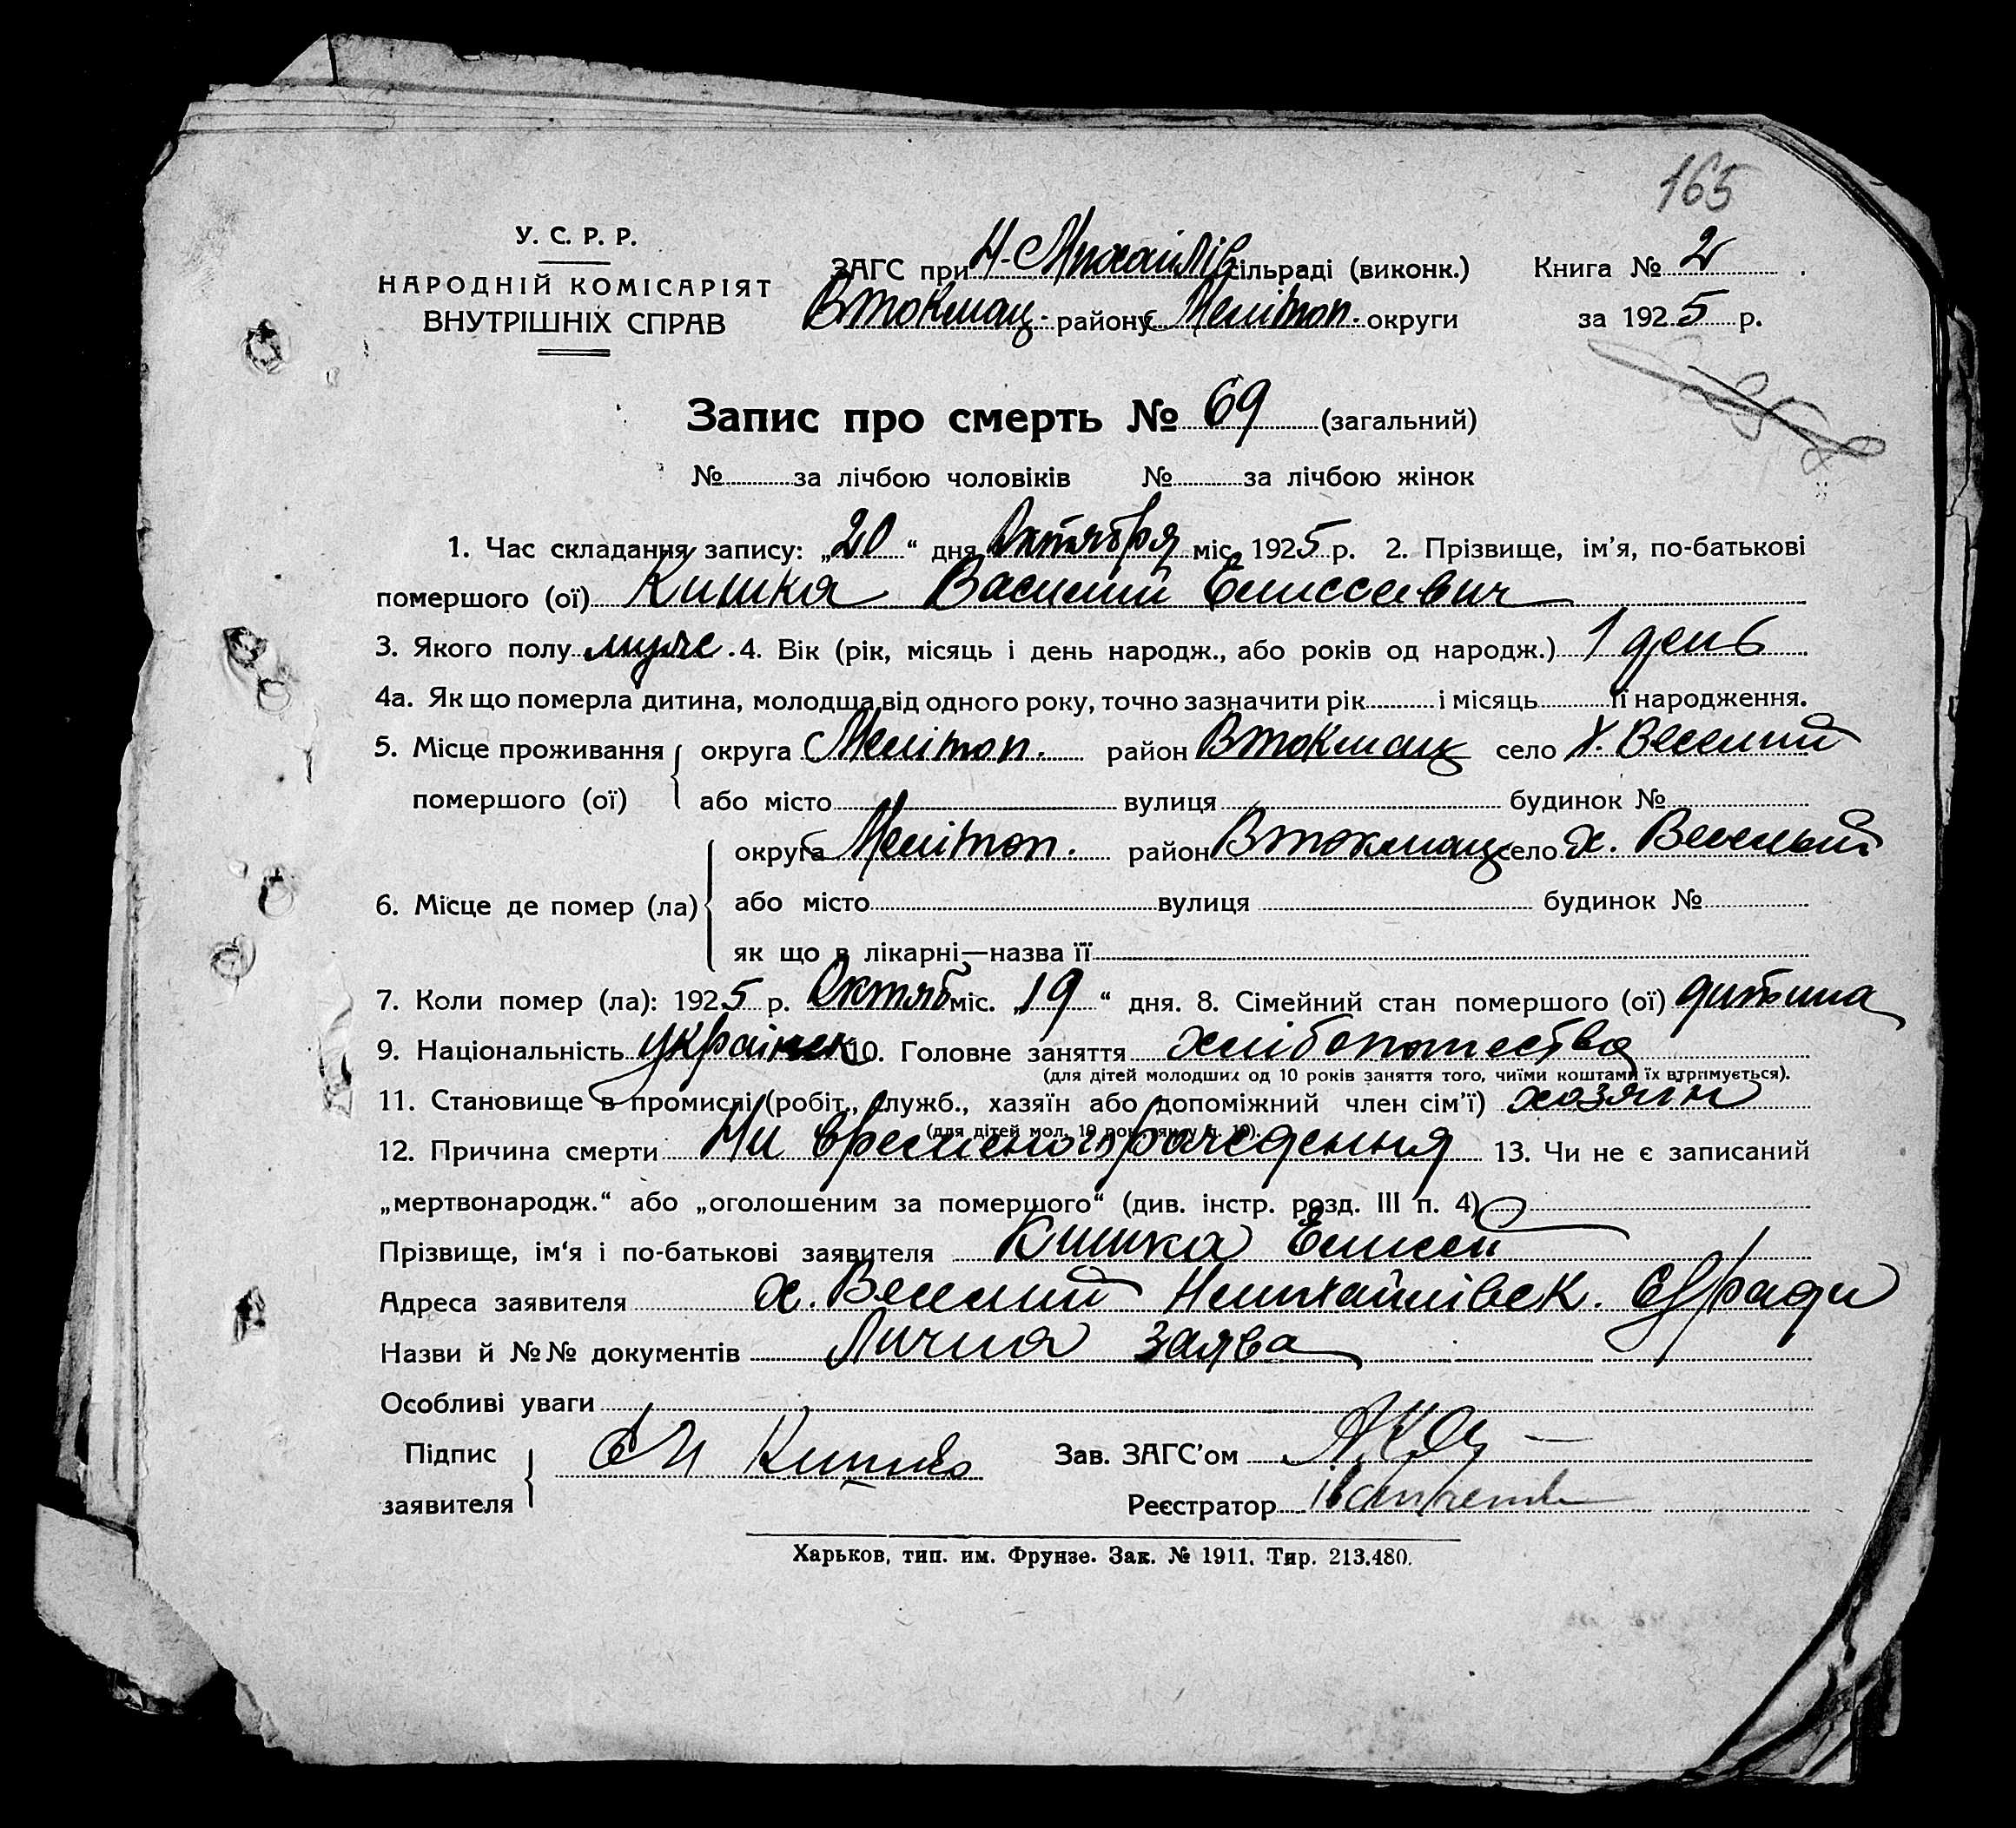 165
У. С. Р. Р.
НАРОДНІЙ КОМІСАРІЯТ
ВНУТРІШНІХ СПРАВ
ЗАГС при Н-Михайлів сільраді (виконк.) Книга № 2
Втокмац. району Меліtоп. округи за 1925 р.
Запис про смерть № 69 (загальний)
№ за лічбою чоловіків № за лічбою жінок
1. Час складання запису: „20“ дня Октября міс. 1925 р. 2. Прізвище, ім’я, по-батькові
помершого (ої) Кишка Василий Елиссеевич
3. Якого полу муже. 4. Вік (рік, місяць і день народж., або років од народж.) 1 день
4а. Як що померла дитина, молодша від одного року, точно зазначити рік і місяць її народження.
5. Місце проживання округа Меліtоп. район Втокмац село Х. Веселий
помершого (ої) або місто вулиця будинок №
округа Меліtоп. район Втокмац село х. Веселый
6. Місце де помер (ла) або місто вулиця будинок №
як що в лікарні—назва її
7. Коли помер (ла): 1925 р. Октяб міс. „19“ дня. 8. Сімейний стан помершого (ої) дитина
9. Національність українец 10. Головне заняття хліборотества
(для дітей молодших од 10 років заняття того, чиїми коштами їх втримується).
11. Становище в промислі (робіт., служб., хазяїн або допоміжний член сім’ї) хозяін
(для дітей мол. 10 рок.
12. Причина смерти Ни временого рожедення 13. Чи не є записаний
„мертвонародж.“ або „оголошеним за помершого“ (див. інстр. розд. III п. 4)
Прізвище, ім‘я і по-батькові заявителя Кишка Елисей
Адреса заявителя х. Веселий Нмихайлівск. С/ради
Назви й №№ документів Лична заява
Особливі уваги
Підпис Кишка Зав. ЗАГС’ом
заявителя Реєстратор
Харьков, тип. им. Фрунзе. Зак. № 1911. Тир. 213.480.